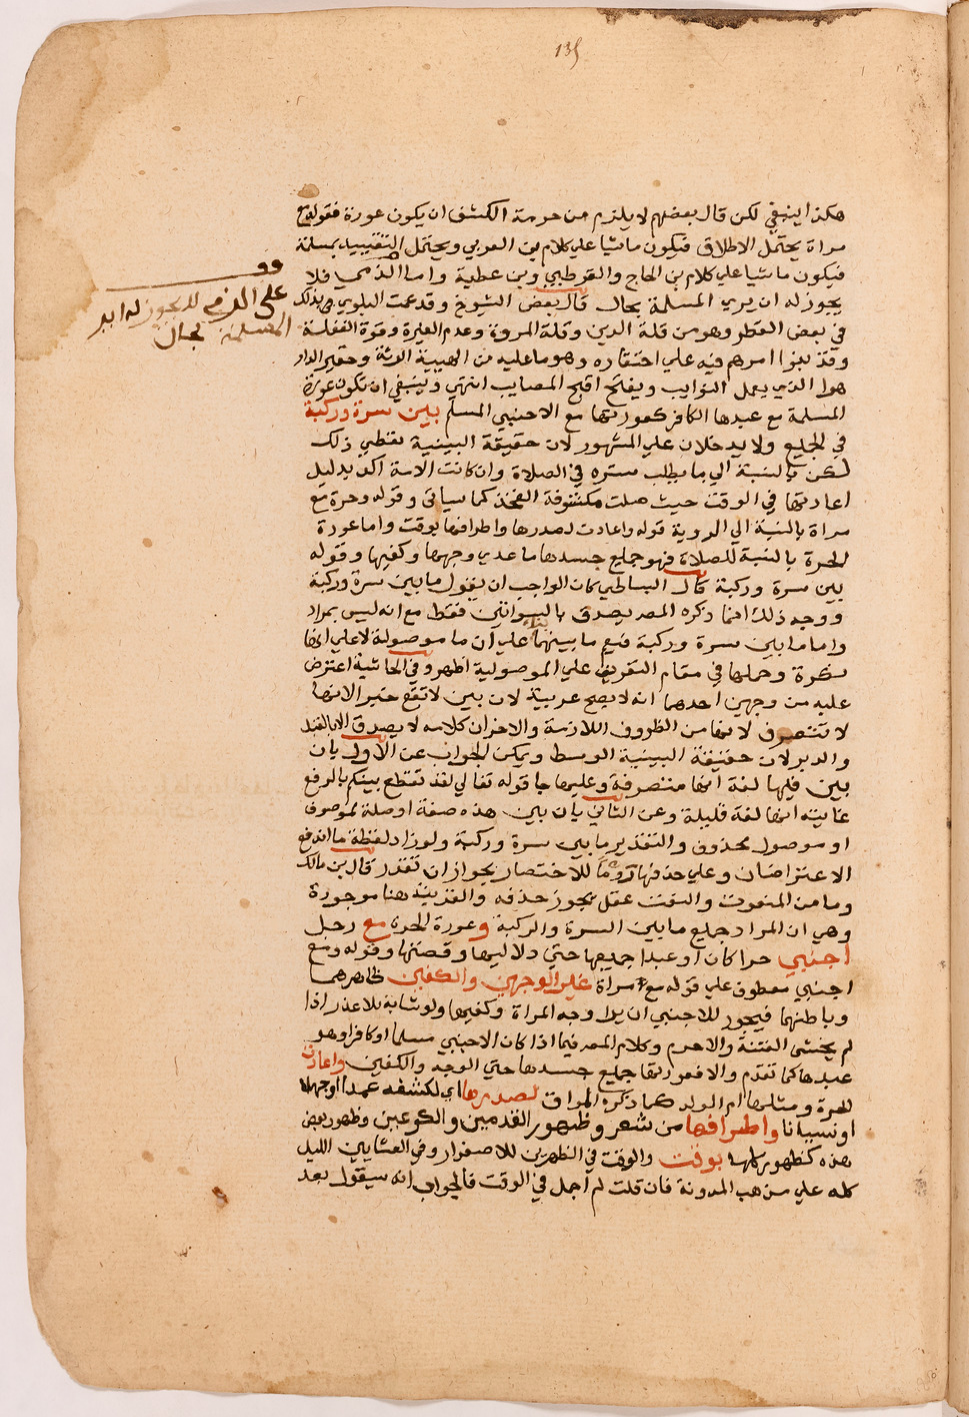 135
هكذا ينبغي لكن قال بعضهم لا يلزم من حرمة الكشف ان يكون عورة فقوله مع
مراة يحتمل الاطلاق فيكون ماشيا علي كلام بن العربي ويحتمل التقييد بمسلمة
فيكون ماشيا علي كلام بن الحاج والقرطبي وبن عطية واما الذمي فلا
يجوز له ان يري المسلمة بحال قال بعض الشيوخ وقد عمت البلوي بذلك
في بعض القطر وهو من قلة الدين وقلة المروة وعدم الغيرة وقوة الغفلة
وقد امرهم فيه علي احتقاره وهو ما عليه من الهيية الرثة وحقير الدار
هوا الذي يعمل النوايب ويفتح اقبح المصايب انتهي وينبغي ان تكون عورة
المسلمة مع عبدها الكافر كعورتها مع الاجنبي المسلم بين سرة وركبة
في الجميع ولا يدخلان علي المشهور لان حقيقة البينية تقتطي ذلك
لكن بالنسبة الي ما يطلب ستره في الصلاة وان كانت الامة اكد بدليل
اعادتها في الوقت حيث صلت مكشوفة الفخذ كما سياتي وقوله وحرة مع
مراة بالنسبة الي الروية قوله واعادت لصدرها واطرافها بوقت واما عورة
الحرة بالنسبة للصلاة فهو جميع جسدها ما عدي وجهها وكفيها وقوله
بين سرة وركبة قال البساطي كان الواجب ان يقول ما بين سرة وركبة
ووجه ذلك انما ذكره المصـ يصدق بالسواتين فقط مع انه ليس بمراد
واما ما بين سرة وركبة فيعم ما بينهما بناء علي ان ما موصولة لا علي انها
نكرة وحملها في مقام التعريف علي الموصولية اظهر وفي الحاشية اعترض
عليه من وجهين احدهما انه لا يصح عربية لان بين لا تقع خبر الانها
لا تتصرف لانها من الظروف اللازمة والاخر ان كلامه لا يصدق الا بالقبل
والدبر لان حقيقة البينية الوسط ويمكن الجواب عن الاول بان
بين فيها لغة انها متصرفة وعليها جا قوله تعالي لقد تقطع بينكم بالرفع
غايته انها لغة قليلة وعن الثاني بان بين هذه صفة او صلة لموصوف
او موصول محذوف والتقدير ما بين سرة وركبة ولو زاد لفظة ما اندفع
الاعتراضان وعلي حذفها للاختصار يجواز ان تقدر قال بن مالك
وما من المنعوت والنعت عقل يجوز حذفه والقرينة هنا موجودة
وهي ان المراد جميع ما بين السرة والركبة وعورة الحرة مع رجل
اجنبي حرا كان او عبدا جميعها حتي دلاليها وقصتها وقوله ومع
اجنبي معطوف علي قوله مع امراة غير الوجهين والكفين ظاهرهما
وباطنهما فيجوز للاجنبي ان يرا وجه المراة وكفيها ولو شابة بلا عذر اذا
لم يخشي الفتنة والاحرم وكلام المصـ فيما اذا كان الاجنبي مسلما او كافرا وهو
عبدها كما تقدم والا فعورتها جميع جسدها حتي الوجه والكفين واعادت
لحرة ومثلها ام الولد كما ذكره المواق لصدرها اي لكشفه عمدا او جهلا
او نسيانا واطرافها من شعر وظهور القدمين والكوعين وظهور بعض
هذه كظهور كلها بوقت والوقت في الظهرين للاصفرار وفي العشايين الليل
كله علي مذهب المدونة فان قلت لم اجمل في الوقت فالجواب انه سيقول بعد
علي الذمي لا يجوز له ان ير
المسلمة بحال